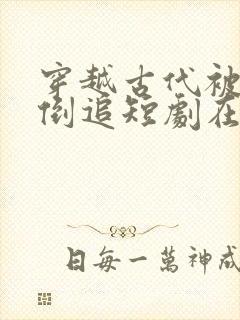 穿越古代被
倒追短劇在
日每一萬神成